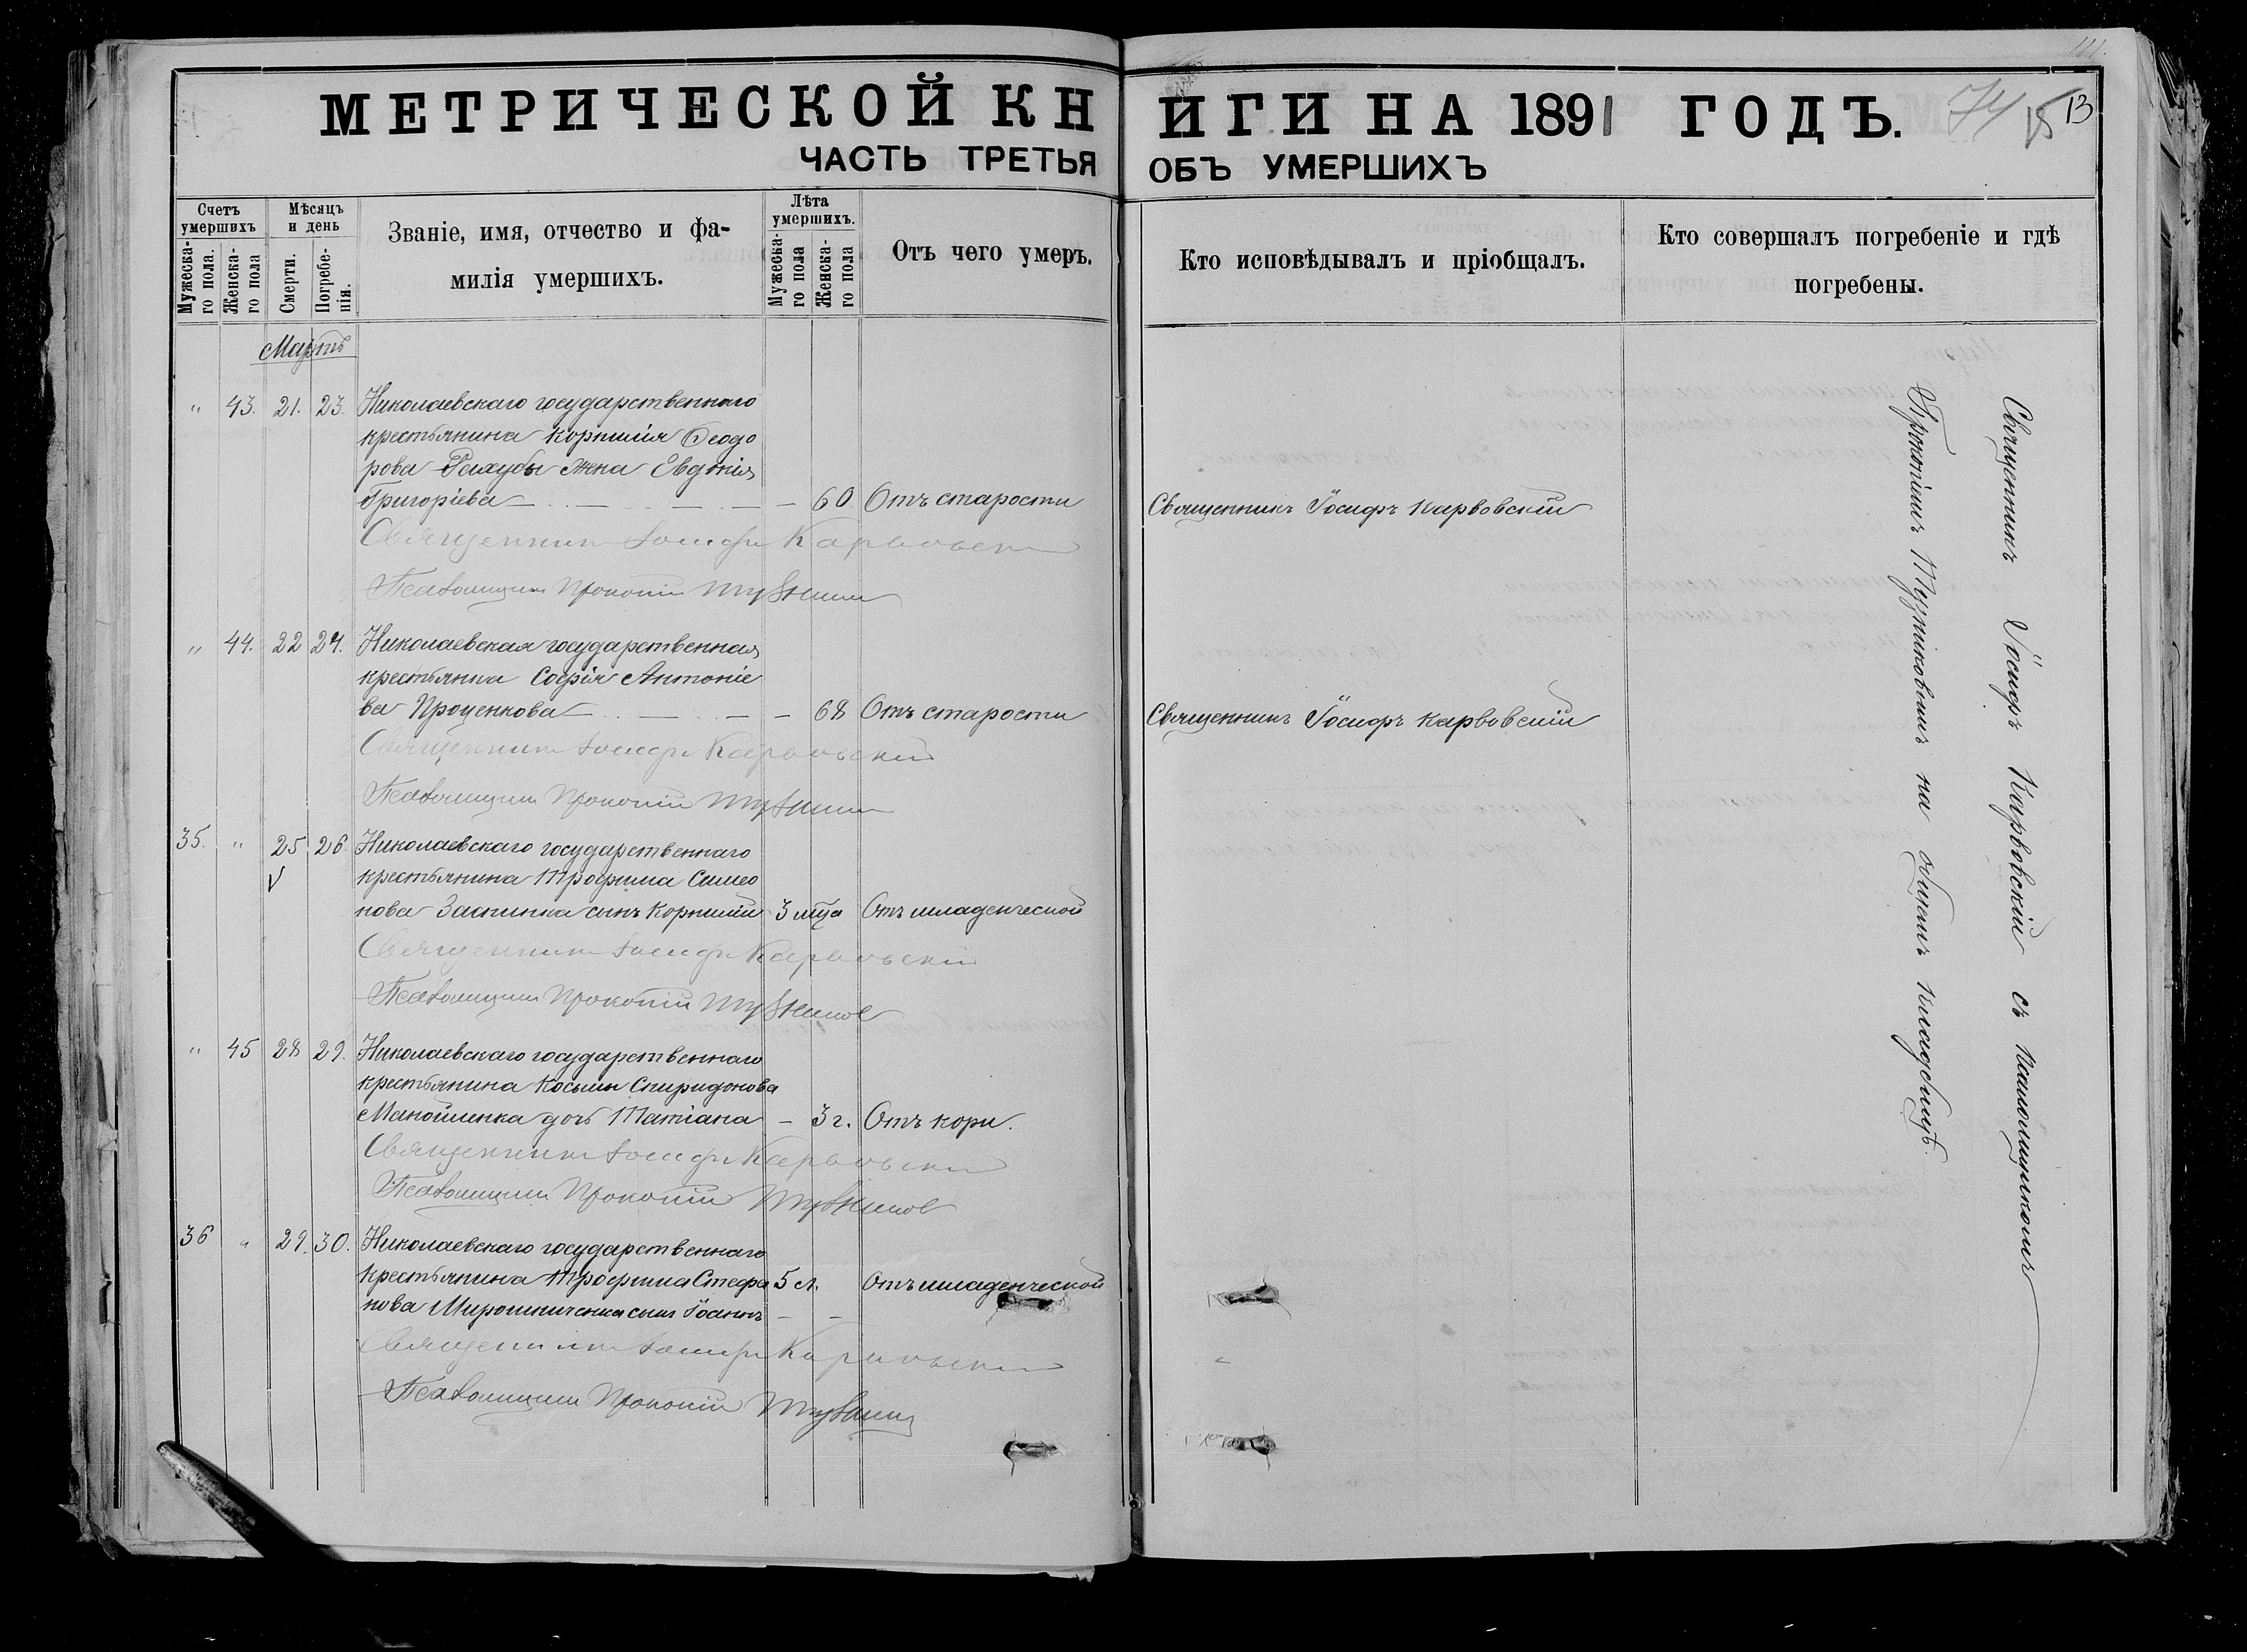 МЕТРИЧЕСКОЙ КНИГИ НА 1891 ГОДЪ.
74 13
ЧАСТЬ ТРЕТЬЯ ОБЪ УМЕРШИХЪ
Счетъ умершихъ
Мужеска-го пола.
Женска-го пола
Мѣсяцъ и день
Смерти.
Погребе-нія.
Званіе, имя, отчество и фа-
милія умершихъ.
Лѣта умершихъ.
Мужеска-го пола
Женска-го пола
Отъ чего умеръ.
Кто исповѣдывалъ и пріобщалъ.
Кто совершалъ погребеніе и гдѣ
погребены.
Мартъ
" 43. 21. 23. Николаевскаго государственнаго
крестьянина Корнилія Ѳеодо
рова жена Евдокія
Григоріева — 60 Отъ старости Священникъ Іосифъ Карвовскій
Священникъ Іосифъ Карвовскій
Псаломщикъ Прокопій
" 44. 22 24. Николаевская государственная
крестьянка Софія Антоніе
ва Проценкова — 68 Отъ старости Священникъ Іосифъ Карвовскій
Священникъ Іосифъ Карвовскій
Псаломщикъ Прокопій
35. " 25 26. Николаевскаго государственнаго
крестьянина Трофима Симео
нова сынъ Корнилій 3 мца Отъ младенческой
Священникъ Іосифъ Карвовскій
Псаломщикъ Прокопій
" 45 28 29. Николаевскаго государственнаго
крестьянина Косьмы Спиридонова
Манойленка дочь Татіана — 3 г. Отъ кори.
Священникъ Іосифъ Карвовскій
Псаломщикъ Прокопій
36 " 29. 30. Николаевскаго государственнаго
крестьянина Трофима Стефа 5 л. Отъ младенческой
нова Мирошниченка сынъ Іоаннъ — —
Священникъ Іосифъ Карвовскій
Псаломщикъ Прокопій
Священникъ Іосифъ Карвовскій съ псаломщикомъ
Прокопіемъ на общемъ кладбищѣ.